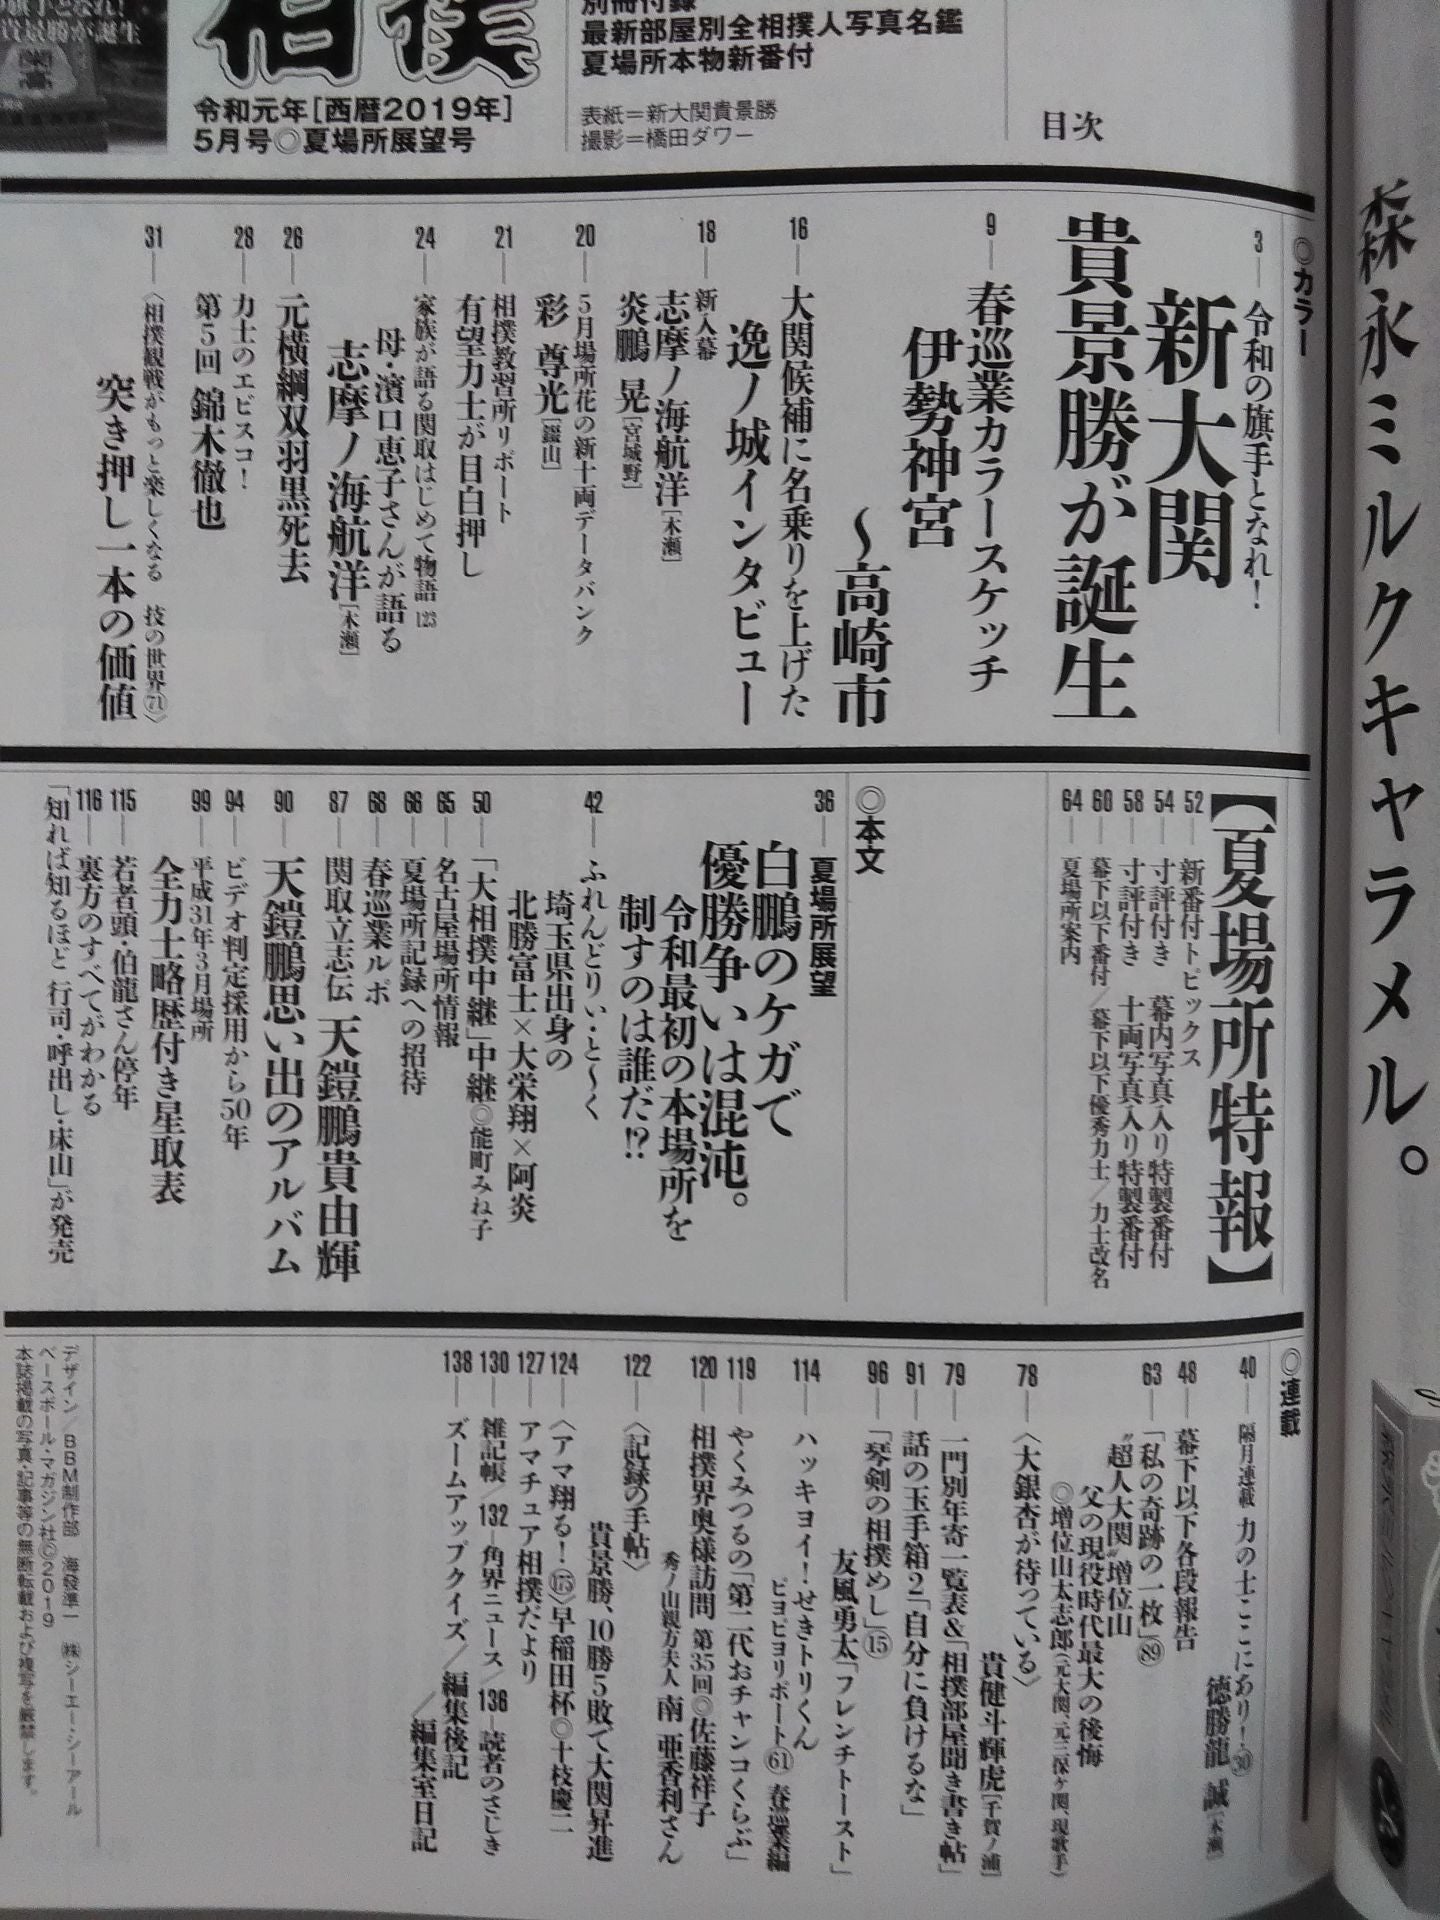 相撲
令和元年[西暦2019年]
5月号◎夏場所展望号
別冊付録
最新部屋別全相撲人写真名鑑
夏場所本物新番付
表紙=新大関貴景勝
撮影=橋田ダワー
目次
◎カラー
3―令和の旗手となれ!
新大関
貴景勝が誕生
9―春巡業カラースケッチ
伊勢神宮
〜高崎市
16―大関候補に名乗りを上げた
逸ノ城インタビュー
18―新入幕
志摩ノ海航洋[木瀬]
炎鵬 晃[宮城野]
20―5月場所花の新十両データバンク
彩 尊光[錣山]
21―相撲教習所リポート
有望力士が目白押し
24―家族が語る関取はじめて物語123
母・濱口恵子さんが語る
志摩ノ海航洋[木瀬]
26―元横綱双羽黒死去
28―力士のエビスコ!
第5回 錦木徹也
31―〈相撲観戦がもっと楽しくなる 技の世界71〉
突き押し一本の価値
【夏場所特報】
52―新番付トピックス
54―寸評付き 幕内写真入り特製番付
58―寸評付き 十両写真入り特製番付
60―幕下以下番付/幕下以下優秀力士/力士改名
64―夏場所案内
◎本文
36―夏場所展望
白鵬のケガで
優勝争いは混沌。
令和最初の本場所を
制すのは誰だ!?
42―ふれんどりぃ・と〜く
埼玉県出身の
北勝富士×大栄翔×阿炎
50―「大相撲中継」中継◎能町みね子
65―名古屋場所情報
66―夏場所記録への招待
68―春巡業ルポ
87―関取立志伝 天鎧鵬貴由輝
90―天鎧鵬思い出のアルバム
94―ビデオ判定採用から50年
99―平成31年3月場所
全力士略歴付き星取表
115―若者頭・伯龍さん停年
116―裏方のすべてがわかる
「知れば知るほど 行司・呼出し・床山」が発売
◎連載
40―隔月連載 力の士ここにあり!㉚
徳勝龍 誠[木瀬]
48―幕下以下各段報告
63―「私の奇跡の一枚」89
“超人大関”増位山
父の現役時代最大の後悔
◎増位山太志郎(元大関、元三保ケ関、現歌手)
78―〈大銀杏が待っている〉
貴健斗輝虎[千賀ノ浦]
79―一門別年寄一覧表&「相撲部屋聞き書き帖」
91―話の玉手箱2「自分に負けるな」
96―「琴剣の相撲めし」⑮
友風勇太「フレンチトースト」
114―ハッキヨイ!せきトリくん
ピヨピヨリポート61 春巡業編
119―やくみつるの「第二代おチャンコくらぶ」
120―相撲界奥様訪問 第35回◎佐藤祥子
秀ノ山親方夫人 南 亜香利さん
122―〈記録の手帖〉
貴景勝、10勝5敗で大関昇進
124―〈アマ翔る!175〉早稲田杯◎十枝慶二
127―アマチュア相撲だより
130―雑記帳/132―角界ニュース/136―読者のさじき
138―ズームアップクイズ/編集後記
/編集室日記
デザイン/BBM制作部 海發準一 ㈱シーエーシーアール
ベースボール・マガジン社©2019
本誌掲載の写真・記事等の無断転載および複写を厳禁します。
森永ミルクキャラメル。